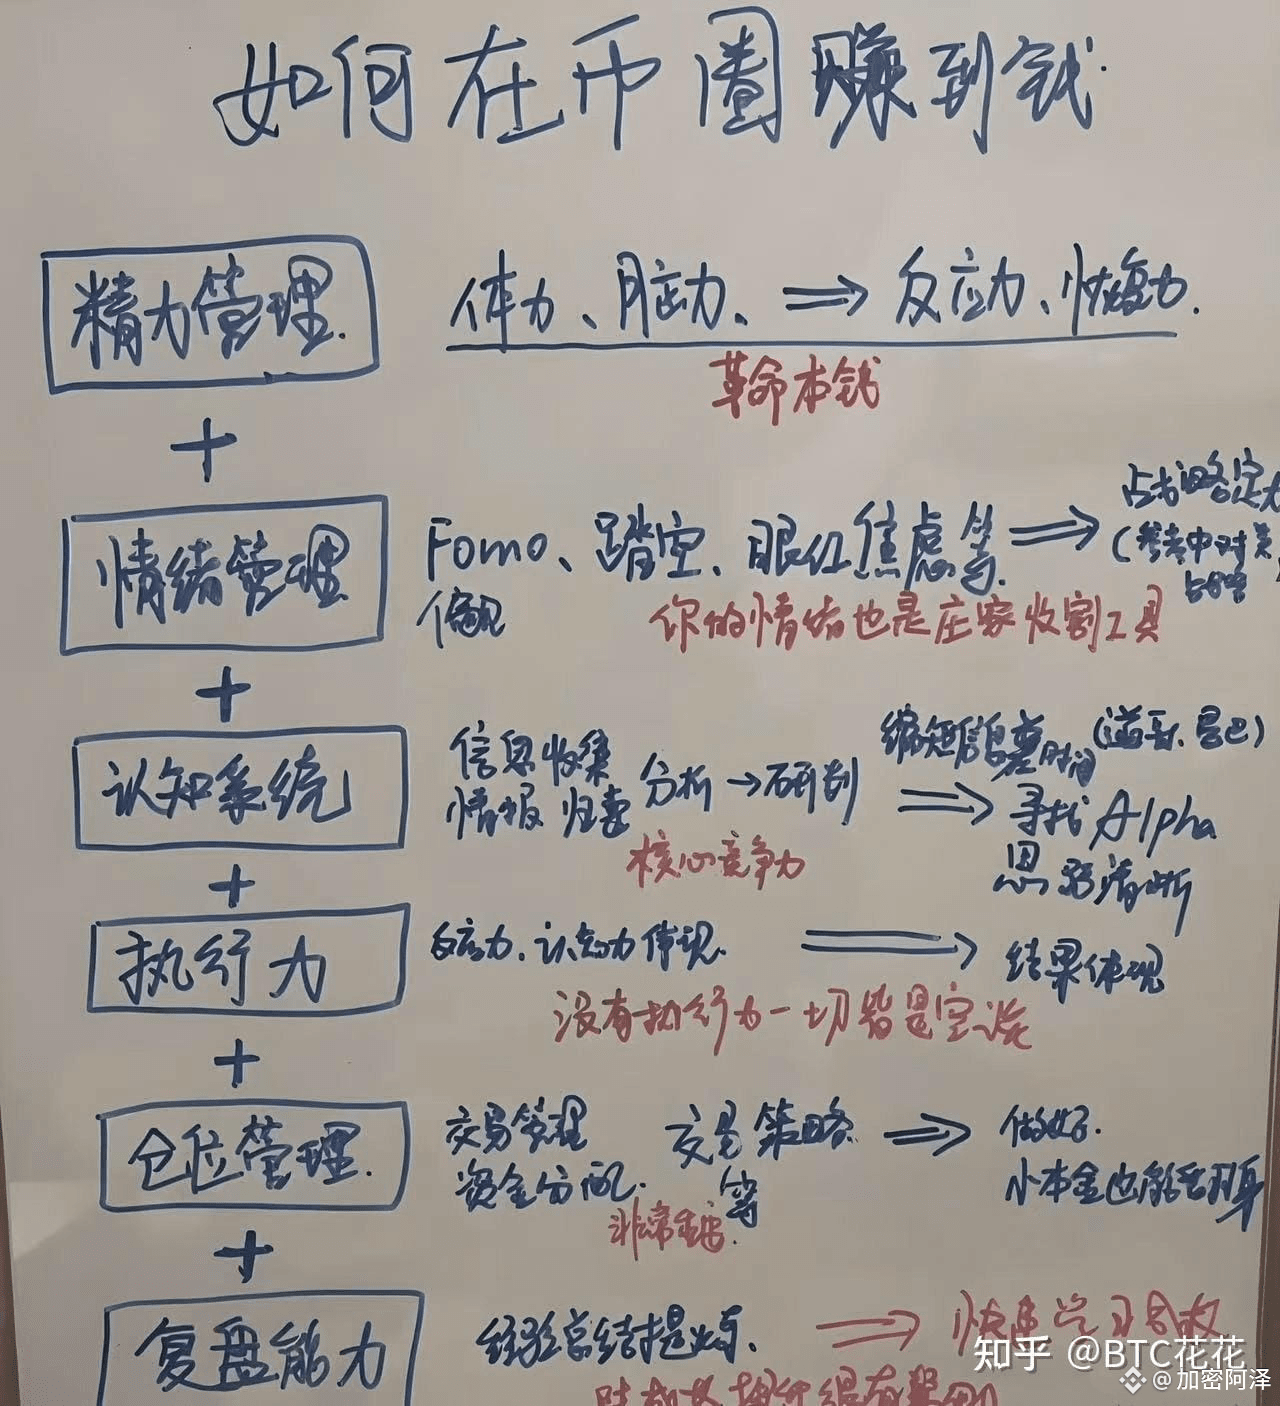 如何在币圈赚到钱
精力管理
体力、月应力、⇒反应力、恢复力.
革命本钱
+
情绪管理
Fomo、踏空、眼红焦虑等⇒
占
(参考中对
偏见
你的情绪也是庄家收割工具
+
认知系统
信息收集
情报归类
分析→研判
⇒
缩短信息差时间
寻找Alpha
思路清晰
核心竞争力
+
执行力
反应力、认知力体现.
⇒
结果体现
没有执行力一切皆是空谈
+
仓位管理
交易管理
资金分配.
交易策略
等
⇒
做好.
小本金也能翻身
非常重要.
+
复盘能力
经验总结提炼.
→
快速学习
知乎 @BTC花花
@加密阿泽